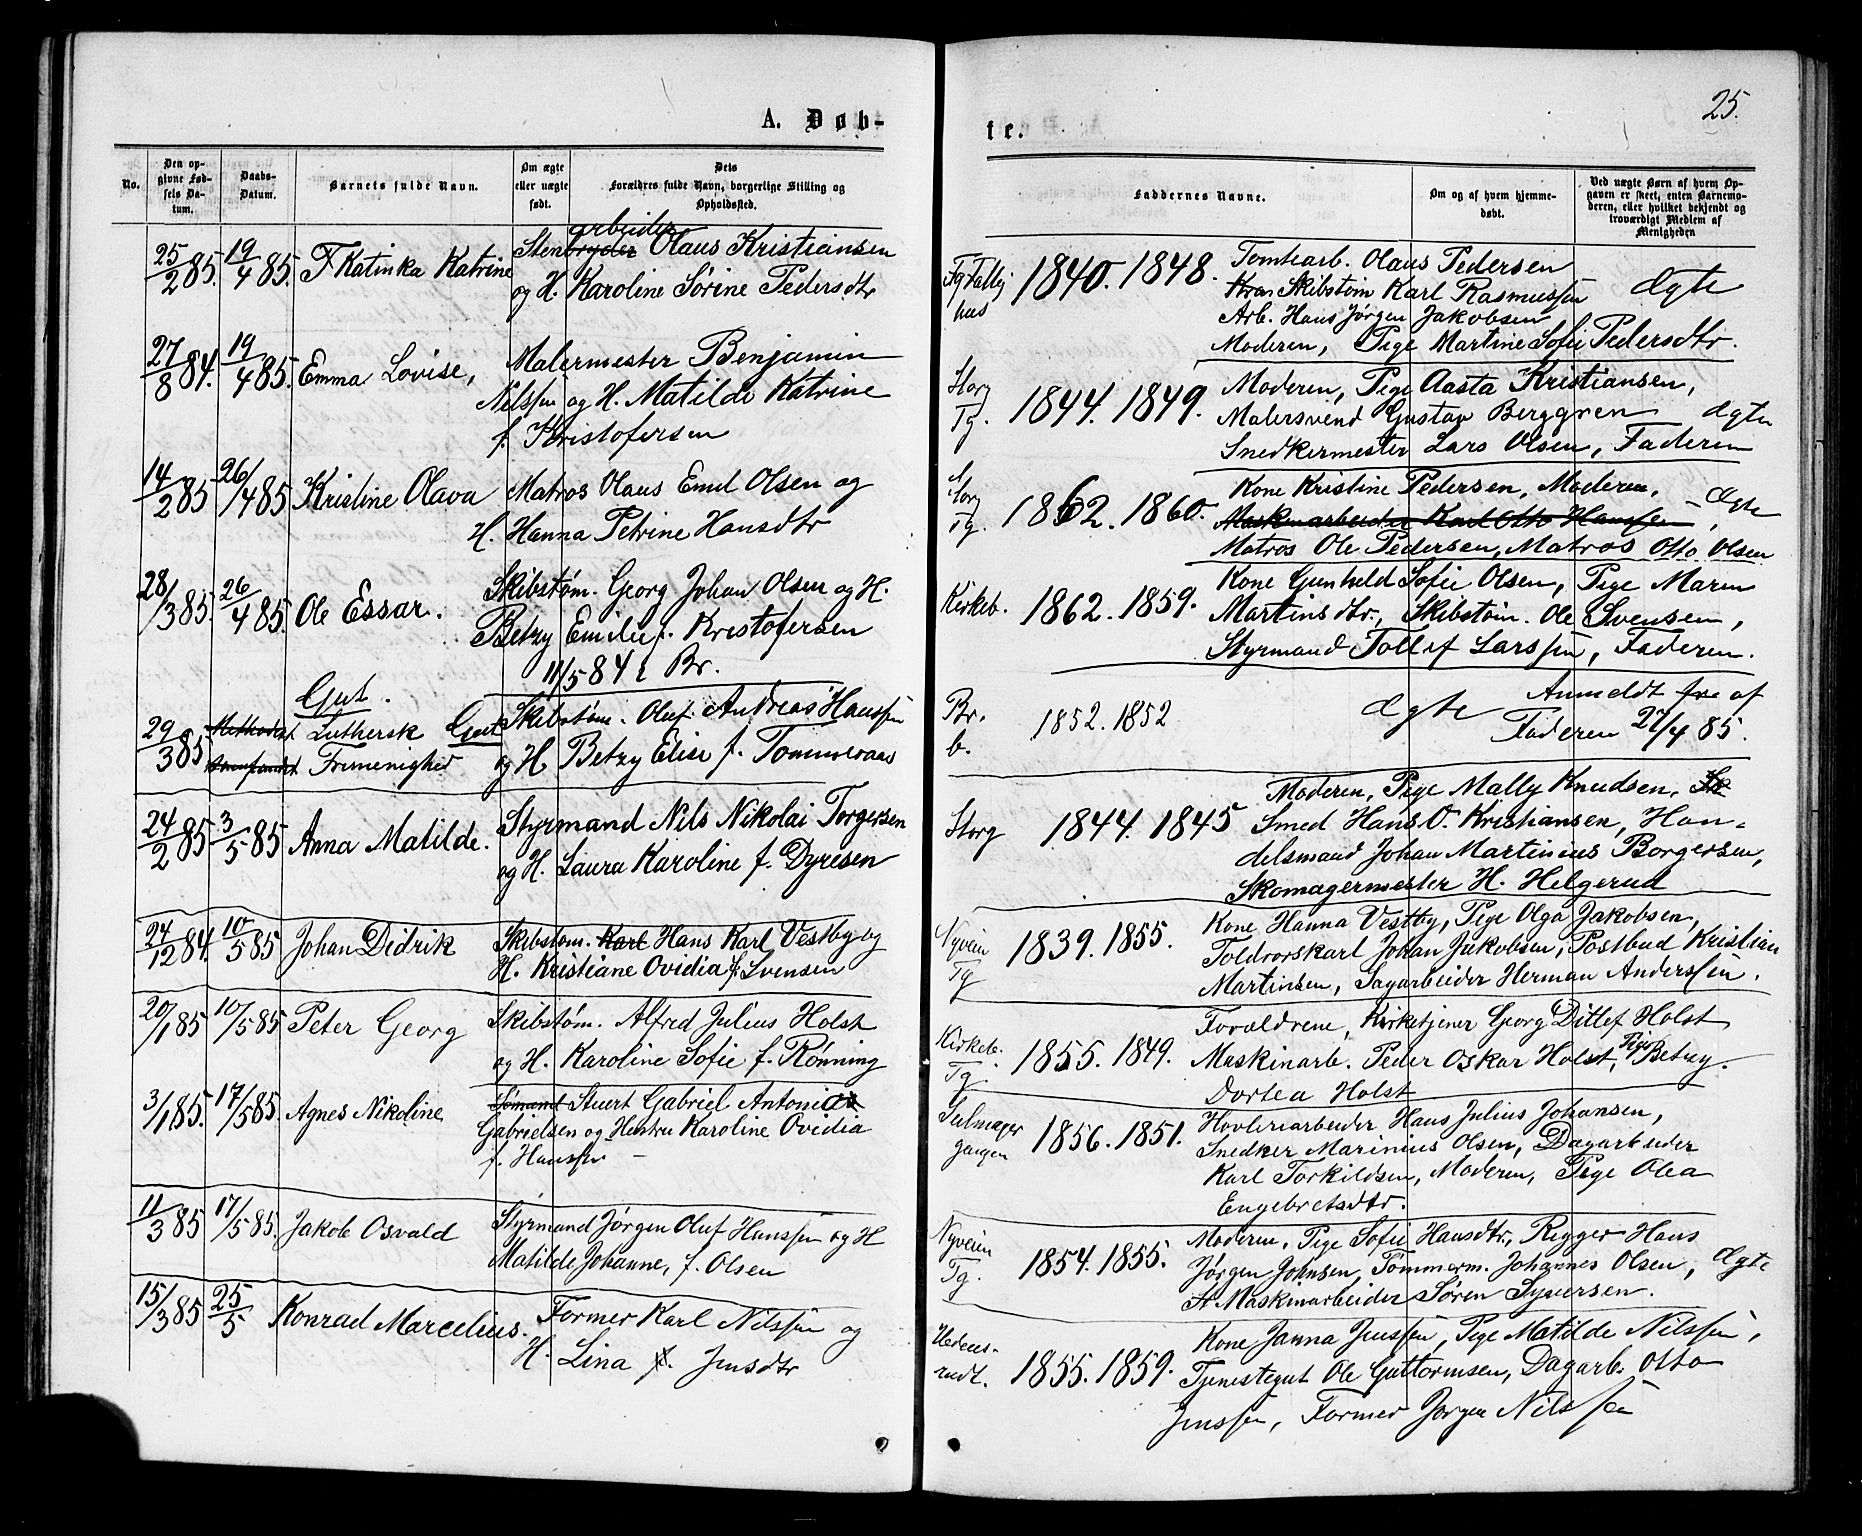 25.
A. Døb-
te.
No.
Den op-
givne Fød-
sels Da-
tum.
Daabs-
Datum.
Barnets fulde Navn.
Om ægte
eller uægte
født.
Dets
Forældres fulde Navn, borgerlige Stilling og
Opholdssted.
Faddernes Navne.
Om og af hvem hjemme-
døbt.
Ved uægte Børn af hvem Op-
gaven er skeet, enten Barnemo-
deren, eller hvilket bekjendt og
troværdigt Medlem af
Menigheden
25/2 85. 19/4 85. Katinka Katrine
arbeider
Stenbryder Olaus Kristiansen
og H. Karoline Sørine Pedersdtr
hus
1840. 1848.
Tomtearb. Olaus Pedersen
Skibstøm Karl Rasmussen
Arb. Hans Jørgen Jakobsen
Moderen, Pige Martine Sofie Pedersdtr.
Ægte
27/8 84. 19/4 85. Emma Lovise,
Malermester Benjamin
Nilssen og H. Matilde Katrine
f. Kristofersen
Storg
Tg.
1844. 1849.
Moderen, Pige Aasta Kristiansen,
Malersvend Gustav Berggren
Snedkermester Lars Olsen, Faderen
Ægte
14/2 85 26/4 85 Kristine Olava
Matros Olaus Emil Olsen og
H. Hanna Petrine Hansdtr
Storg
Tg.
1862. 1860.
Kone Kristine Pedersen, Moderen,
Maskinarbeider Karl Otto Hanssen,
Matros Ole Pedersen, Matros Otto Olsen
Ægte
28/3 85. 26/4 85. Ole Essar.
Skibstøm. Georg Johan Olsen og H.
Betzy Emilie f. Kristofersen
11/5 84 i Br.
Kirkeb.
1862. 1859.
Kone Gunhild Sofie Olsen, Pige Maren
Martinsdtr., Skibstøm. Ole Svensen,
Styrmand Tollef Larssen, Faderen.
29/3 85
Gut.
Methodist Luthersk Gut
Frimenighed
Skibstøm. Oluf Andreas Hanssen
og H Betzy Elise f. Tommeraas
Br.
b.
1852. 1852
Ægte
Anmeldt fra af
Faderen 27/4 85.
24/2 85 3/5 85 Anna Matilde.
Styrmand Nils Nikolai Torgersen
og H. Laura Karoline f. Dyresen
Storg
1844. 1845
Moderen, Pige Mally Knudsen, Sk
Smed Hans O. Kristiansen, Han-
delsmand Johan Martinius Borgersen,
Skomagermester H. Helgerud
24/12 84. 10/5 85 Johan Didrik
Skibstøm. Karl Hans Karl Vestby og
H. Kristiane Ovidia f. Svensen
Nyveien
Tg
1839. 1855.
Kone Hanna Vestby, Pige Olga Jakobsen,
Toldvorskarl Johan Jakobsen, Postbud Kristian
Martinsen, Sagarbeider Herman Anderssen.
20/1 85 10/5 85 Peter Georg
Skibstøm. Alfred Julius Holst
og H. Karoline Sofie f. Rønning
Kirkeb.
Tg.
1855. 1849.
Forældrene, Kirketjener Georg Ditlef Holst
Maskinarb. Peder Oskar Holst, Pige Betzy
Dortea Holst
3/1 85. 17/5 85. Agnes Nikoline
Sømand Stuert Gabriel Antonius
Gabrielsen og Hustru Karoline Ovidia
f. Hanssen
Seilmager
gangen
1856. 1851.
Høvleriarbeider Hans Julius Johansen,
Snedker Marinius Olsen, Dagarbeider
Karl Torkildsen, Moderen, Pige Olea
Engebretsdtr.
11/3 85 17/5 85. Jakob Osvald
Styrmand Jørgen Oluf Hanssen og H
Matilde Johanne, f. Olsen
Nyveien
Tg.
1854. 1855.
Moderen, Pige Sofie Hansdtr, Rigger Hans
Jørgen Johnsen, Tømmerm. Johannes Olsen,
Maskinarbeider Søren Syversen.
Ægte
15/3 85 25/5 Konrad Marcelius.
Former Karl Nilssen og
H. Lina f. Jensdtr
1855. 1859.
Kone Janna Jenssen, Pige Matilde Nilssen,
Tjenestegut Ole Guttormsen, Dagarb. Otto
Jenssen, Former Jørgen Nilssen